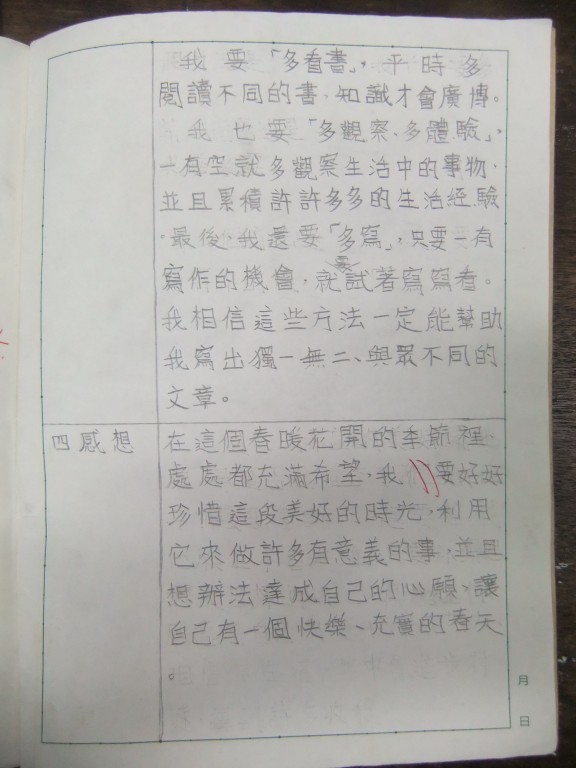 我要「多看書」，平時多
閱讀不同的書，知識才會廣博。
我也要「多觀察、多體驗」，
一有空就多觀察生活中的事物，
並且累積許許多多的生活經驗
。最後，我還要「多寫」，只要一有
寫作的機會，就要試著寫寫看。
我相信這些方法一定能幫助
我寫出獨一無二、與眾不同的
文章。
四感想
在這個春暖花開的季節裡，
處處都充滿希望，我要好好
珍惜這段美好的時光，利用
它來做許多有意義的事，並且
想辦法達成自己的心願、讓
自己有一個快樂、充實的春天
。
月
日